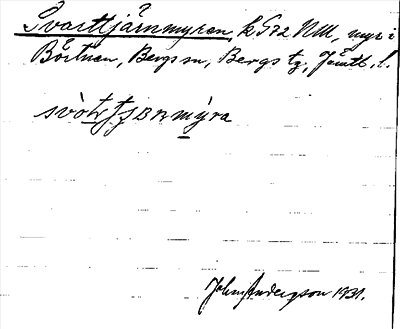 Svarttjärnmyren, k 572 NM, myr i
Börtnan, Bergs sn, Bergs tg, Jämtl. l.
svòtʈʂɈänmýra
John Anderson 1931.